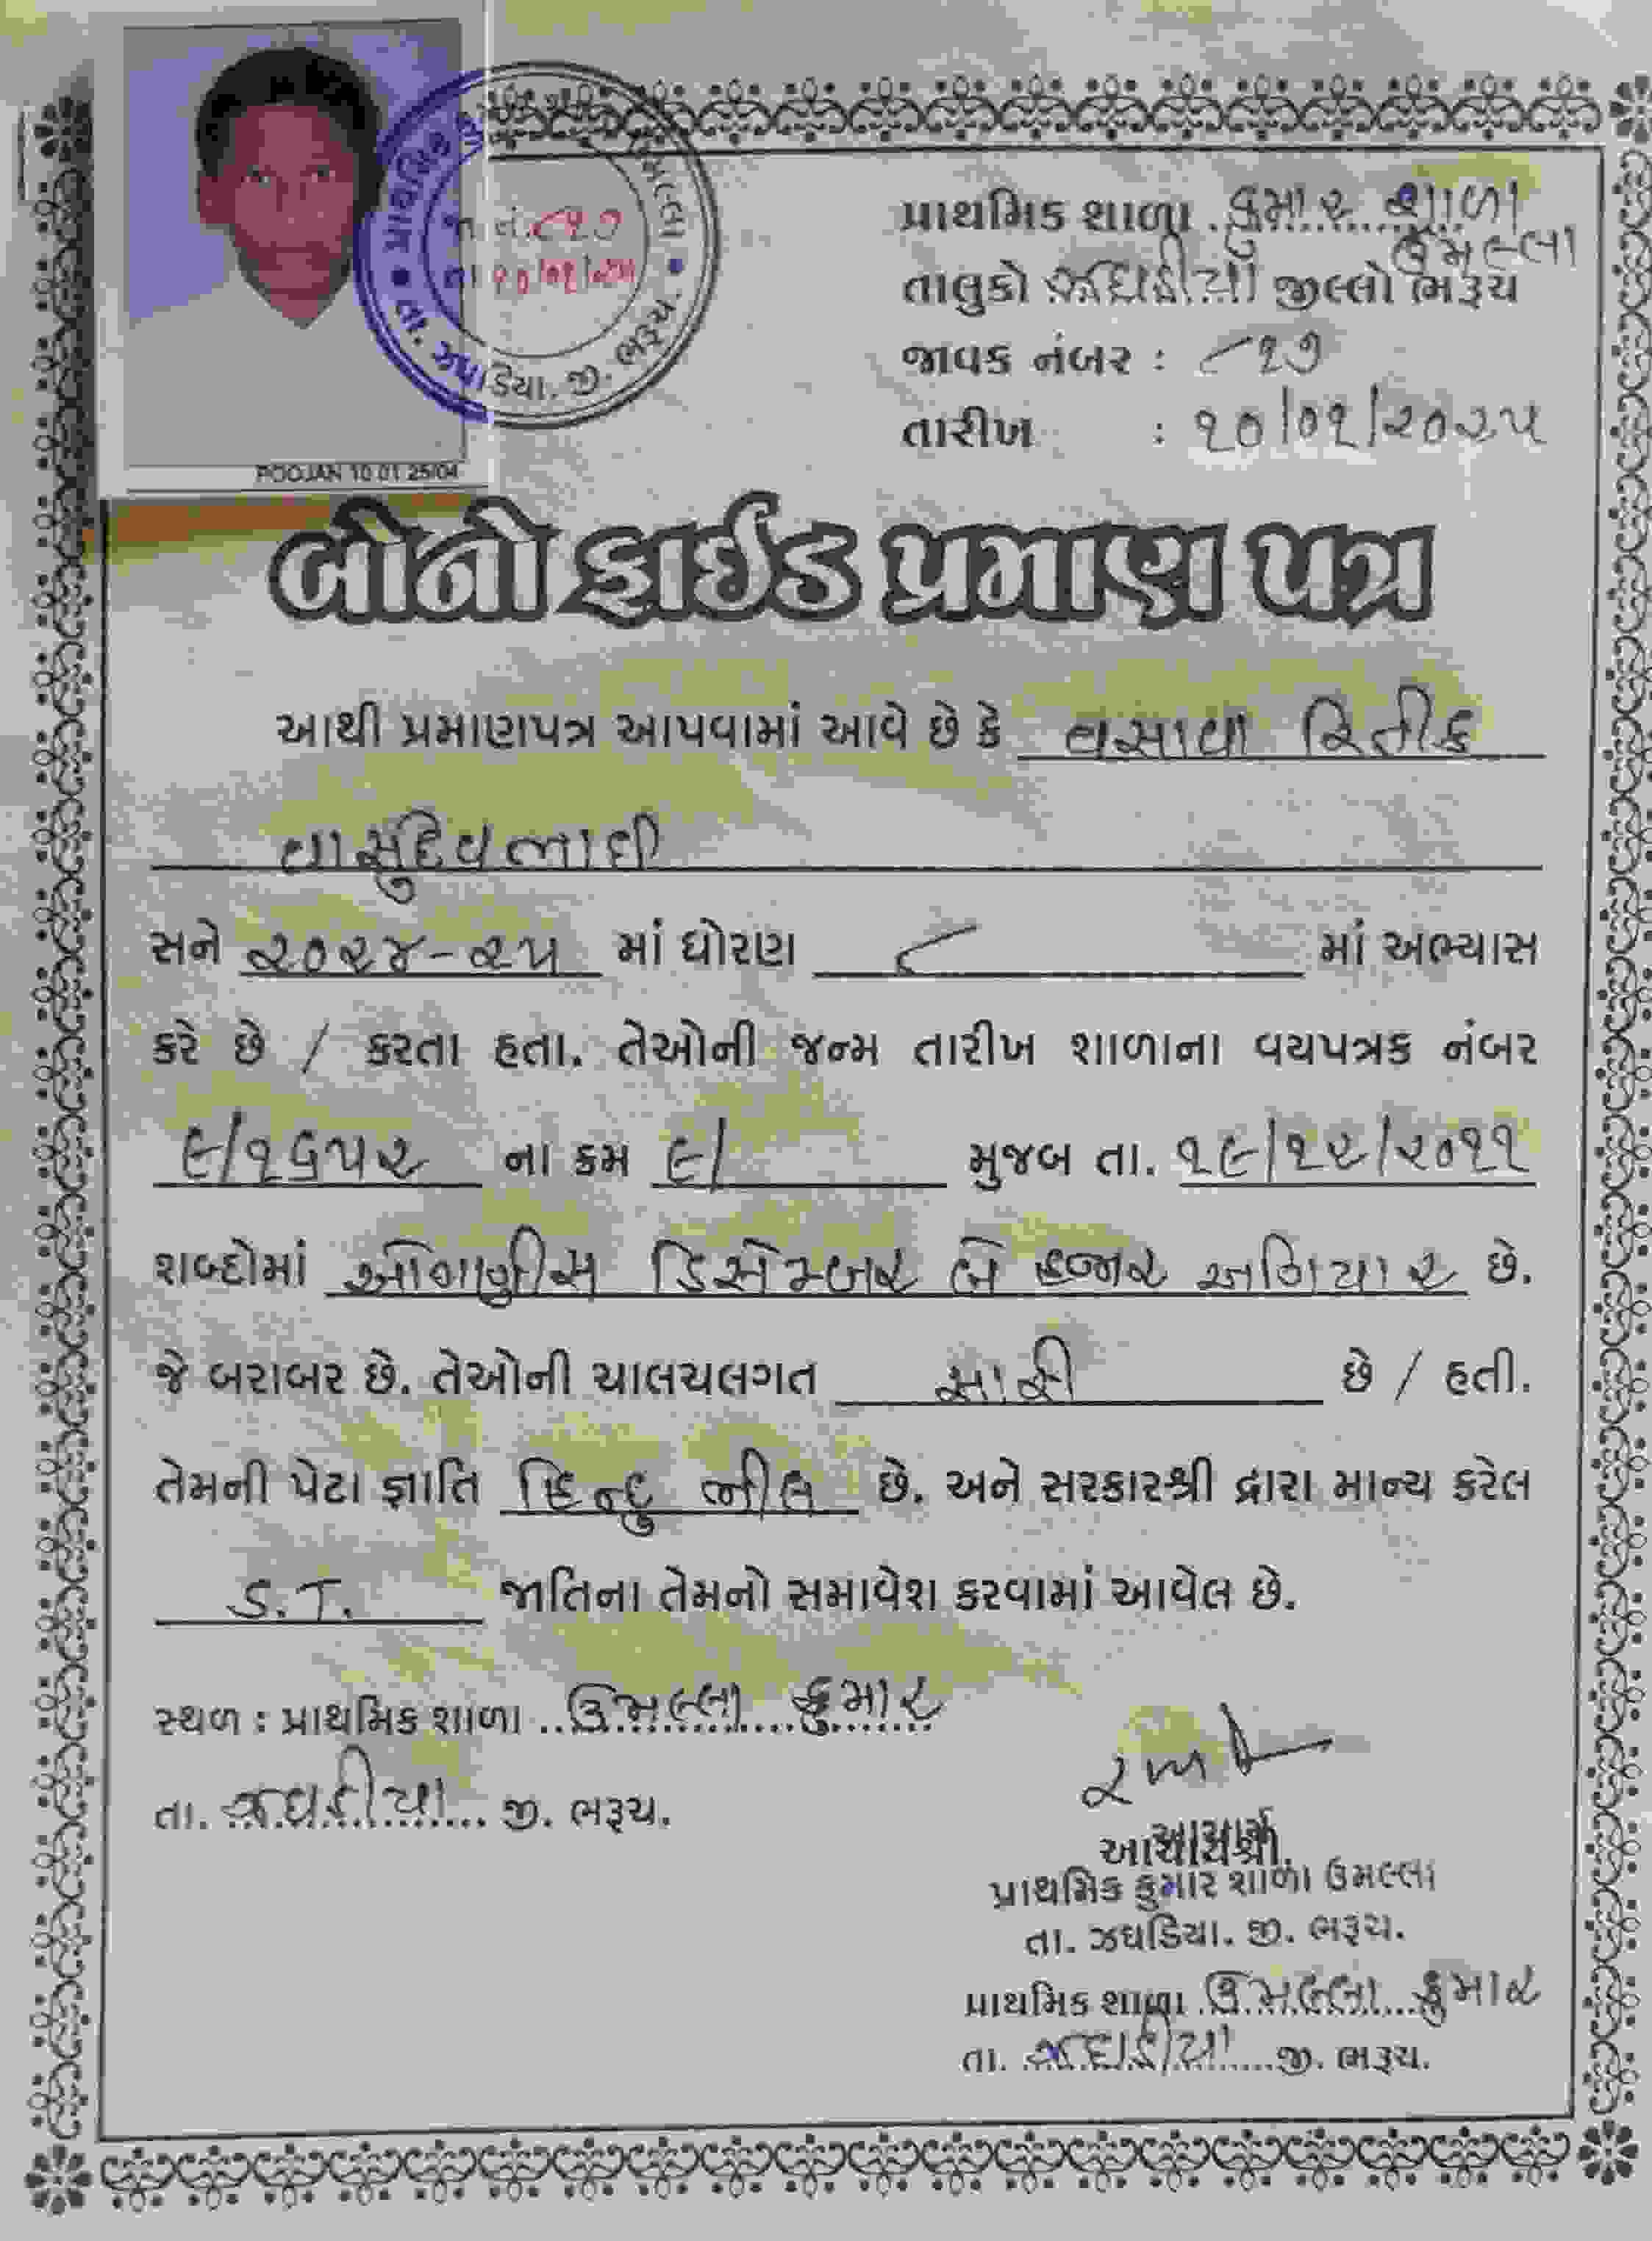 પ્રાથમિક શાળા કુમાર શાળા
ઉમલ્લા
તાલુકો ઝઘડીયા જીલ્લો ભરૂચ
જાવક નંબર : ૮૧૭
તારીખ : ૧૦/૦૧/૨૦૨૫
ઉમલ્લા
જા. નં. ૮૧૭
તા ૧૦/૦૧/૨૫
તા. ઝઘડિયા. જી. ભરૂચ.
POOJAN 10 01 25/04
બોનોફાઈડ પ્રમાણ પત્ર
આથી પ્રમાણપત્ર આપવામાં આવે છે કે વસાવા રિતીક
વાસુદેવભાઈ
સને ૨૦૨૪-૨૫ માં ધોરણ ૮ માં અભ્યાસ
કરે છે / કરતા હતા. તેઓની જન્મ તારીખ શાળાના વયપત્રક નંબર
૯/૧૬૫૨ ના ક્રમ ૯/ મુજબ તા. ૧૯/૧૨/૨૦૧૧
શબ્દોમાં ઓગણીસ ડિસેમ્બર બે હજાર અગિયાર છે.
જે બરાબર છે. તેઓની ચાલચલગત સારી છે / હતી.
તેમની પેટા જ્ઞાતિ હિન્દુ ભીલ છે. અને સરકારશ્રી દ્વારા માન્ય કરેલ
S.T. જાતિના તેમનો સમાવેશ કરવામાં આવેલ છે.
સ્થળ : પ્રાથમિક શાળા ઉમલ્લા કુમાર
તા. ઝઘડીયા જી. ભરૂચ.
આચાર્ય
આચાર્યશ્રી.
પ્રાથમિક કુમાર શાળા ઉમલ્લા
તા. ઝઘડિયા. જી. ભરૂચ.
પ્રાથમિક શાળા ઉમલ્લા કુમાર
તા. ઝઘડીયા જી. ભરૂચ.